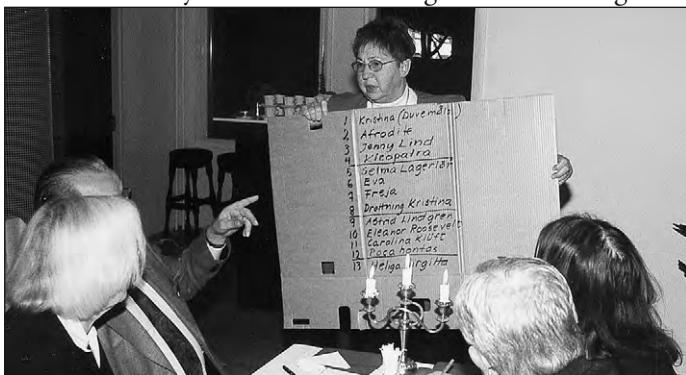 1 Kristina (Duvemåla)
2 Afrodite
3 Jenny Lind
4 Kleopatra
5 Selma Lagerlöf
6 Eva
7 Freja
8 Drottning Kristina
9 Astrid Lindgren
10 Eleanor Roosevelt
11 Carolina Klüft
12 Pocahontas
13 Heliga Birgitta